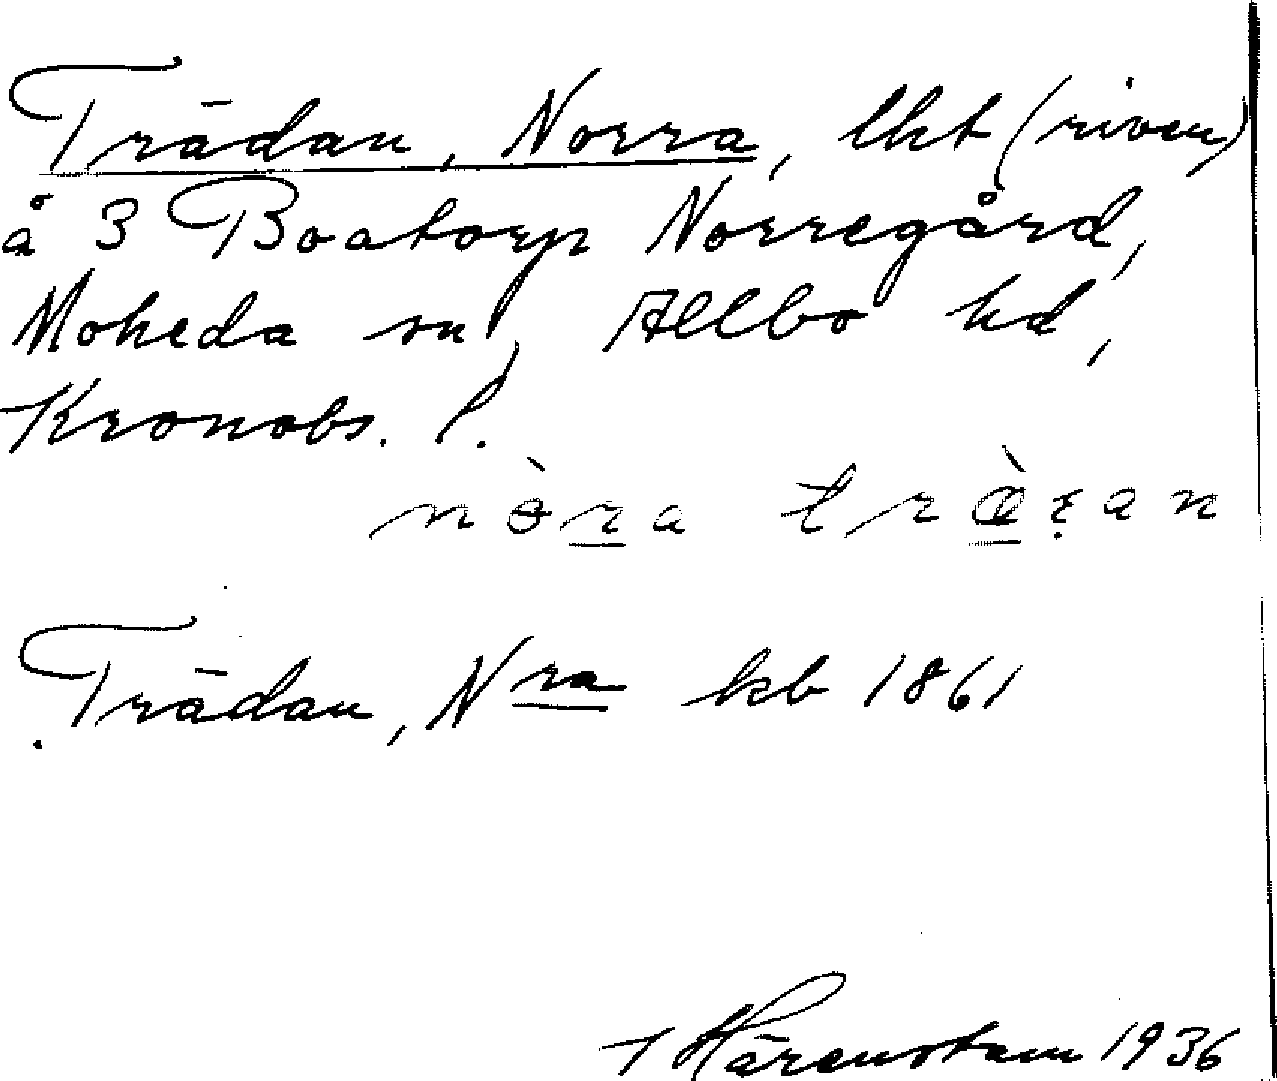 Trädan, Norra, lht (riven)
å 3 Boatorp Norregård,
Moheda sn, Allbo hd,
Kronobs. l.
nòra træ̀ran
Trädan, Nra kb 1861
T Härenstam 1936